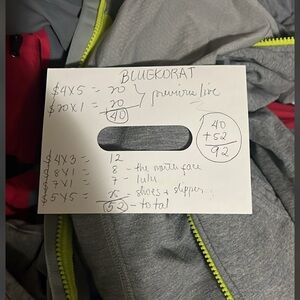 BLUEKORAT
$4X5 = 20
$20X1 = 20 previous live
40
40
+52
92
$4X3 = 12
8X1 = 8 - the north face
7X1 = 7 - lulu
$5X5 = 25 - shoes + slippers
52 - total